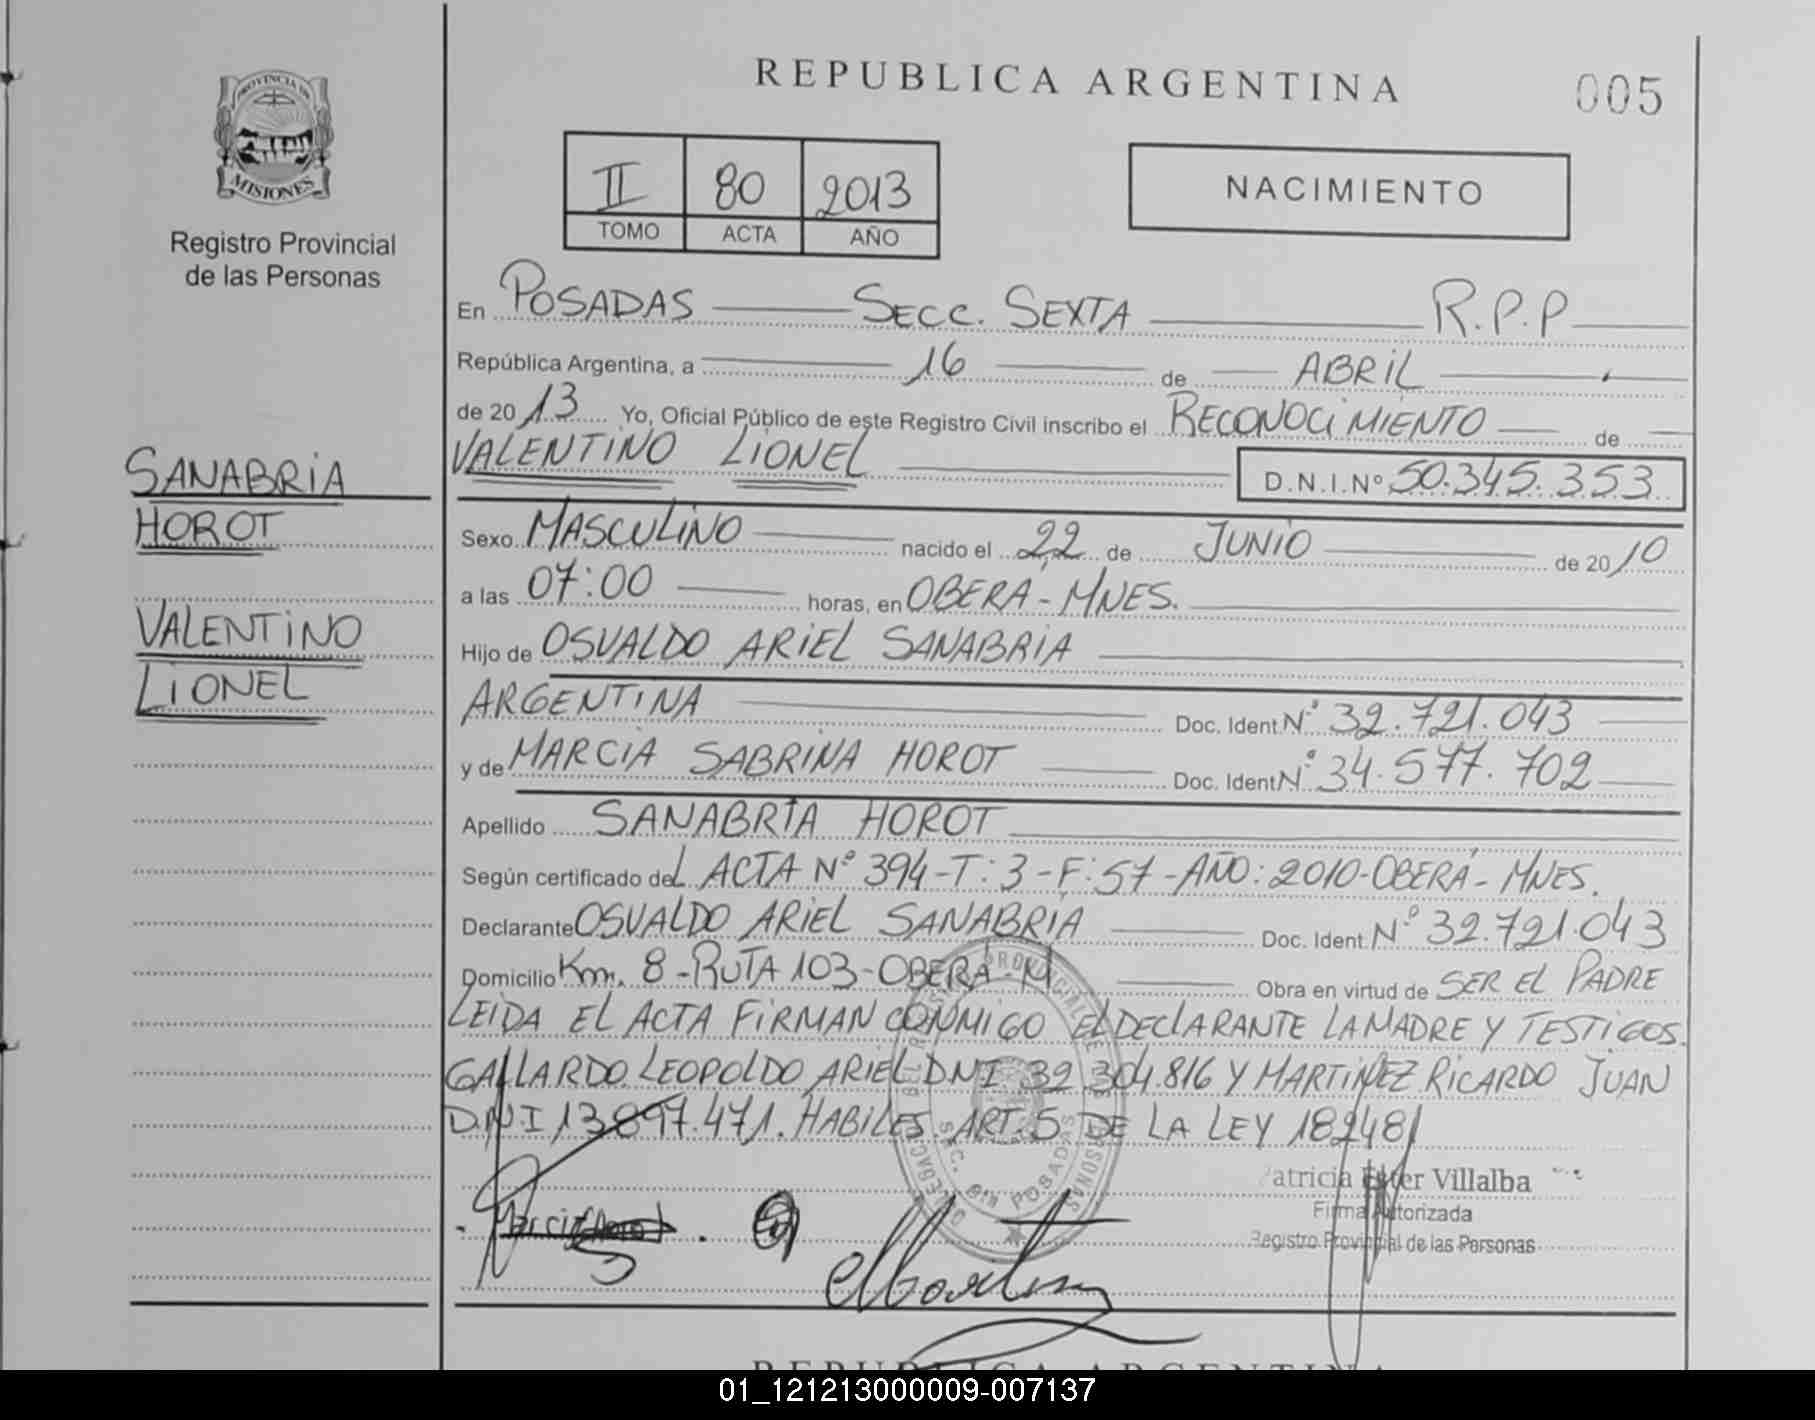 REPUBLICA ARGENTINA
005
PROVINCIA DE
MISIONES
Registro Provincial
de las Personas
II 80 2013
TOMO ACTA AÑO
NACIMIENTO
En POSADAS SECC. SEXTA R.P.P
República Argentina, a 16 de ABRIL
de 20 13 Yo, Oficial Público de este Registro Civil inscribo el RECONOCIMIENTO de
VALENTINO LIONEL D.N.I.Nº 50.345.353
SANABRIA
HOROT
VALENTINO
LIONEL
Sexo MASCULINO nacido el 22 de JUNIO de 20 10
a las 07:00 horas, en OBERÁ - MNES.
Hijo de OSVALDO ARIEL SANABRIA
ARGENTINA Doc. Ident Nº 32.721.043
y de MARCIA SABRINA HOROT Doc. Ident Nº 34.577.702
Apellido SANABRIA HOROT
Según certificado del ACTA Nº 394-T:3-F:57-AÑO:2010-OBERÁ-MNES.
Declarante OSVALDO ARIEL SANABRIA Doc. Ident. Nº 32.721.043
Domicilio Km. 8 - RUTA 103 - OBERÁ - M Obra en virtud de SER EL PADRE
LEIDA EL ACTA FIRMAN CONMIGO EL DECLARANTE LA MADRE Y TESTIGOS.
GALLARDO LEOPOLDO ARIEL DNI 32.304.816 Y MARTINEZ RICARDO JUAN
D.N.I 13.897.471. HABILES ART. 5 DE LA LEY 18248
DELEGACION DEL REGISTRO PROVINCIAL DE LAS PERSONAS
SEC. 6ta POSADAS
Patricia Ester Villalba
Firma Autorizada
Registro Provincial de las Personas
REPUBLICA ARGENTINA
01_121213000009-007137